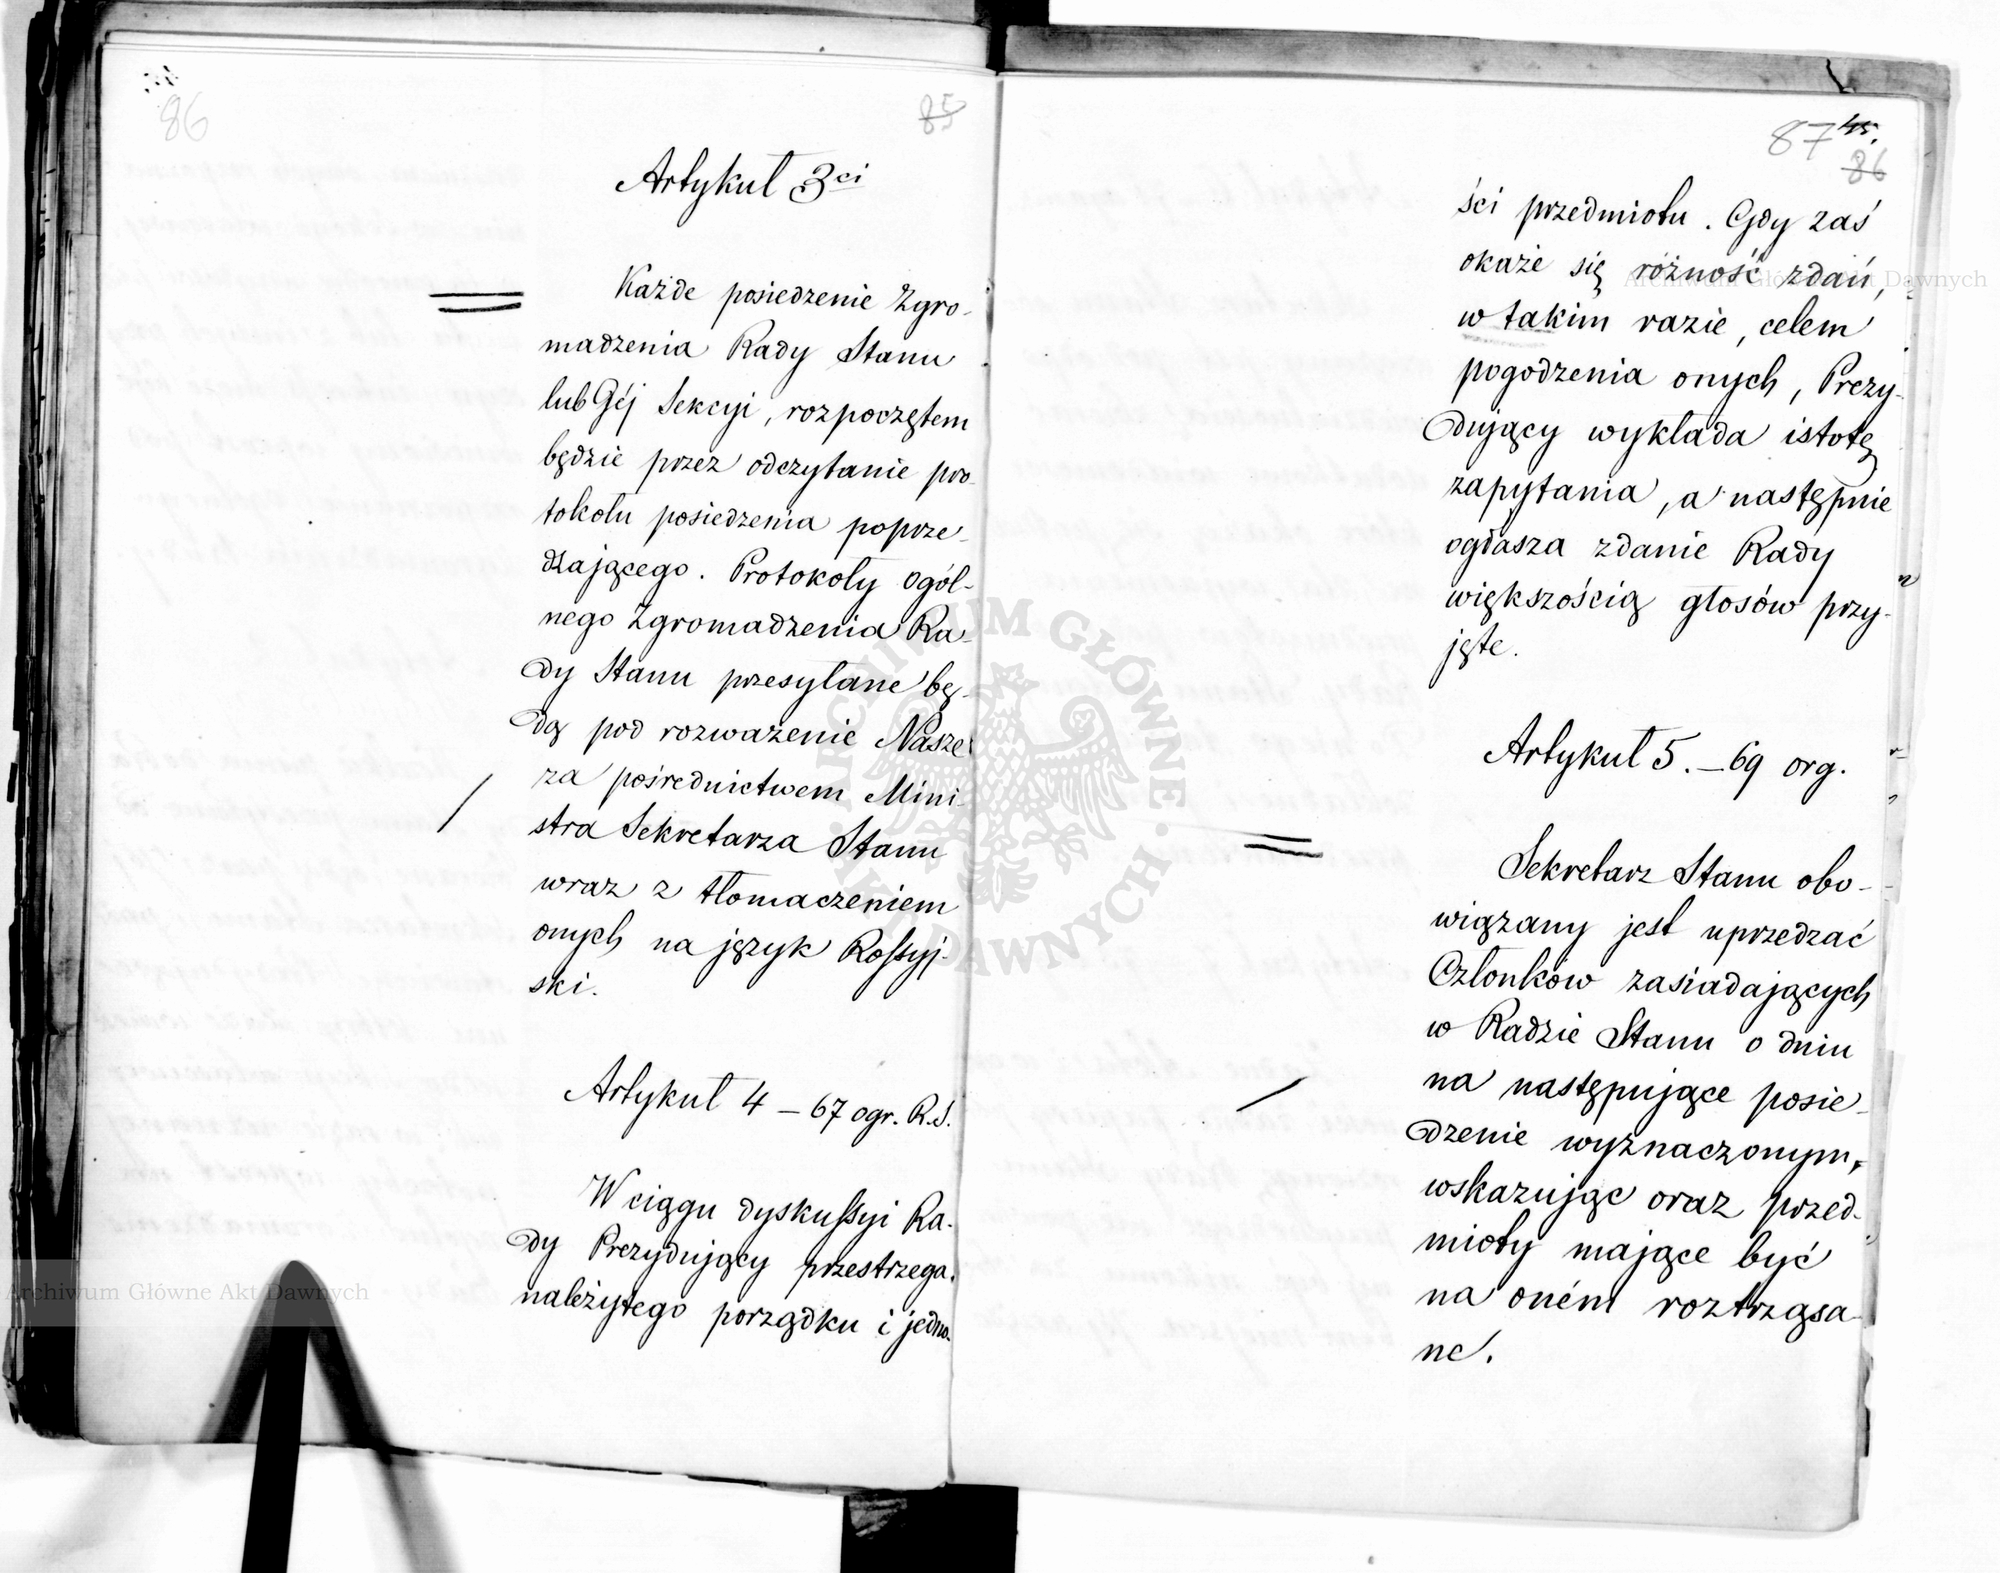 86
85
Artykuł 3ci
Każde posiedzenie Zgro-
madzenia Rady Stanu
lub Jéj Sekcyi, rozpoczętem
będzie przez odczytanie pro-
tokołu posiedzenia poprze-
dzającego. Protokoły ogól-
nego Zgromadzenia Ra-
dy Stanu przesyłane bę-
dą pod rozważenie Nasze
za pośrednictwem Mini-
stra Sekretarza Stanu
wraz z tłomaczeniem
onych na język Rossyj-
ski.
Artykuł 4 – 67 ogr. R.S.
W ciągu dyskussyi Ra-
dy Prezydujący przestrzega
należytego porządku i jedno-
87 45.
86
ści przedmiotu. Gdy zaś
okaże się różność zdań,
w takim razie, celem
pogodzenia onych, Prezy-
dujący wykłada istotę
zapytania, a następnie
ogłasza zdanie Rady
większością głosów przy-
jęte.
Artykuł 5. – 69 org.
Sekretarz Stanu obo-
wiązany jest uprzedzać
Członków zasiadających
w Radzie Stanu o dniu
na następujące posie-
dzenie wyznaczonym,
wskazując oraz przed-
mioty mające być
na oném roztrząsa-
ne.
Archiwum Główne Akt Dawnych
Archiwum Główne Akt Dawnych
ARCHIWUM GŁÓWNE AKT DAWNYCH